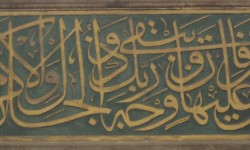 عليها فان ويبقى وجه ربك ذو الجلال